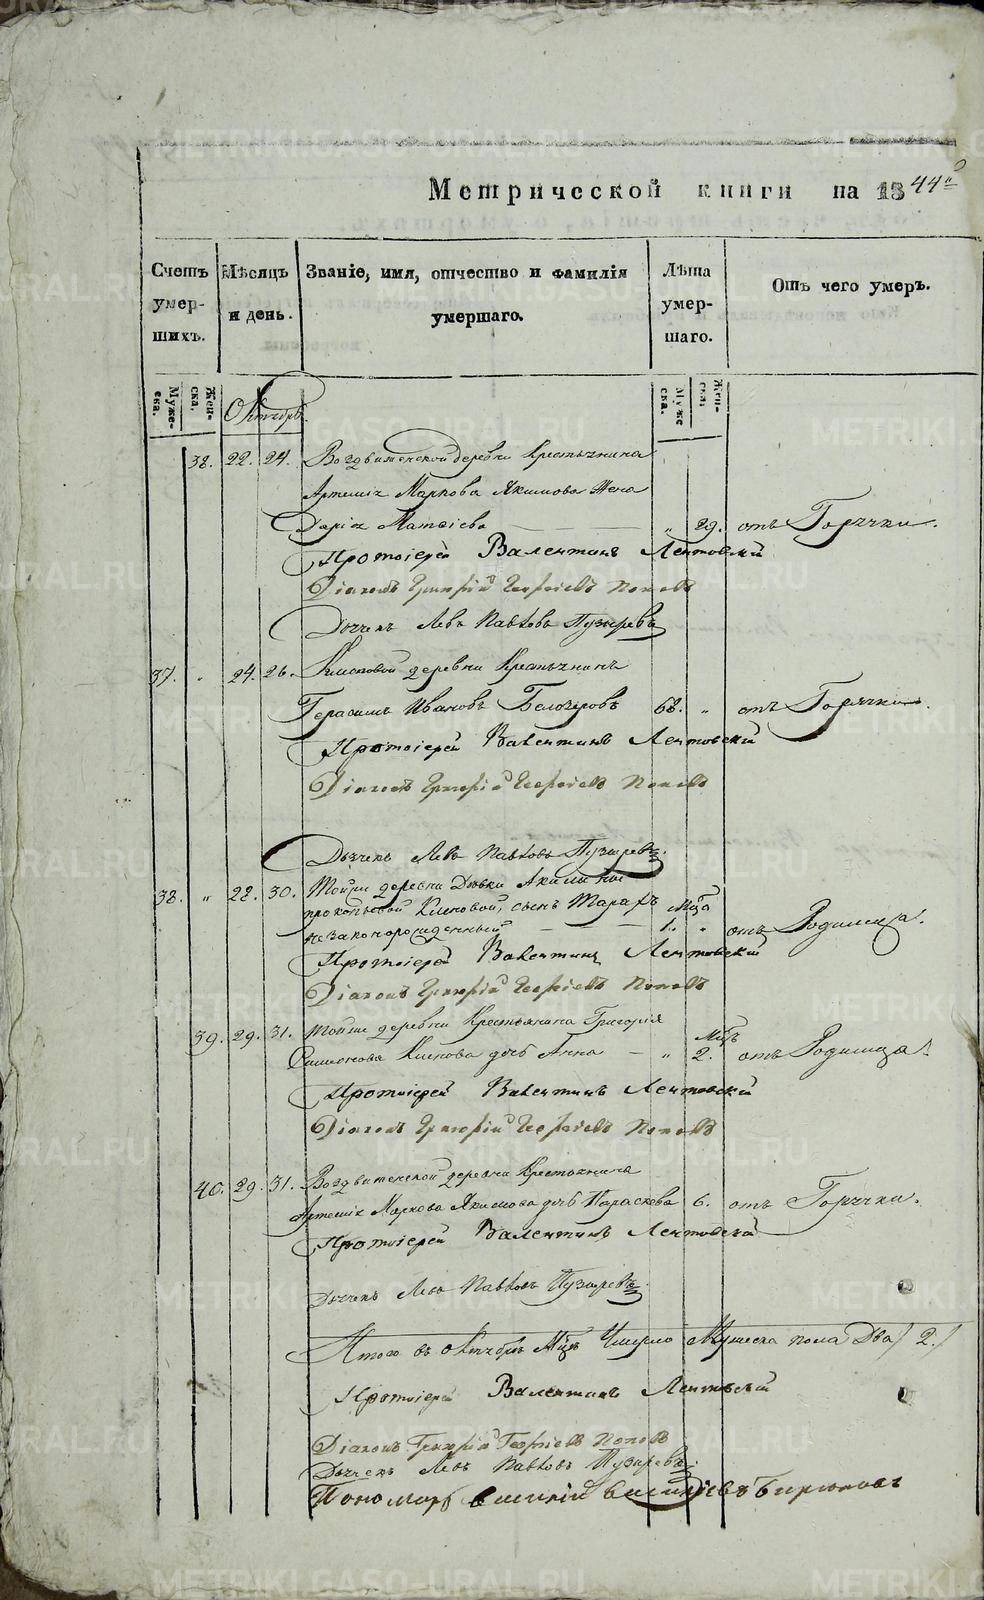 Метрической книги на 1844й
Счетъ умершихъ.
Мѣсяцъ и день.
Званіе, имя, отчество и фамилія умершаго.
Лѣта умершаго.
Отъ чего умеръ.
Мужеска.
Женска.
Октябрь
Мужеска.
Женска.
38. 22. 24. Воздвиженской деревни Крестьянина
Артемія Маркова Якимова жена
Дарія Матѳіева „ 29. отъ Горячки.
Протоіерей Валентинъ Лентовскій
Діаконъ Григорій Георгіевъ Поповъ
Дьячекъ Левъ Павловъ Пузыревъ
37. „ 24. 26. деревни Крестьянинъ
Герасимъ Ивановъ Белозеровъ 68. „ отъ Горячки.
Протоіерей Валентинъ Лентовскій
Діаконъ Григорій Георгіевъ Поповъ
Дьячекъ Левъ Павловъ Пузыревъ.
38. „ 28. 30. Тойже деревни Дѣвки Акилины
Прокопьевой, сынъ Тарахъ Мѣся
незаконорожденный 1. „ отъ Родимца.
Протоіерей Валентинъ Лентовскій
Діаконъ Григорій Георгіевъ Поповъ
39. 29. 31. Тойже деревни Крестьянина Григорія Мѣ
Симонова дочь Анна „ 2. отъ Родимца.
Протоіерей Валентинъ Лентовскій
Діаконъ Григорій Георгіевъ Поповъ
40. 29. 31. Воздвиженской деревни Крестьянина
Артемія Маркова Якимова дочь Параскева 6. отъ Горячки.
Протоіерей Валентинъ Лентовскій
Дьячекъ Левъ Павловъ Пузыревъ.
Итого въ Октябрѣ Мцѣ Умерло Мужеска пола Два / 2. /
Протоіерей Валентинъ Лентовскій
Діаконъ Григорій Георгіевъ Поповъ
Дьячекъ Левъ Павловъ Пузыревъ.
Пономарь Василій Василіевъ Бирюковъ
METRIKI.GASO-URAL.RU